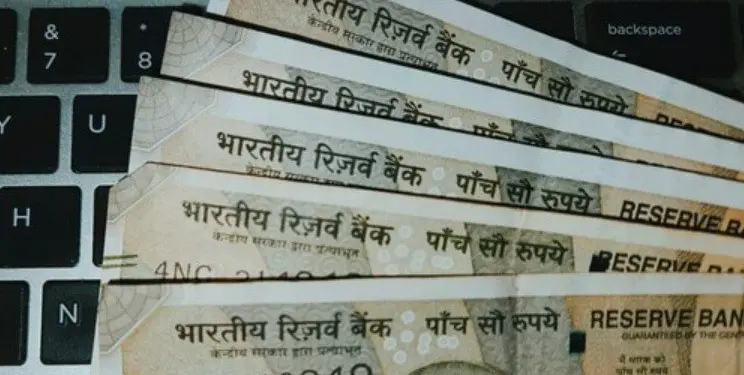 & 7
* 8
backspace
Y
U
H
N
भारतीय रिज़र्व बैंक पाँच सौ रुपये
केन्द्रीय सरकार द्वारा प्रत्याभूत
भारतीय रिज़र्व बैंक पाँच सौ रुपये
भारतीय रिज़र्व बैंक पाँच सौ रुपये RESERVE
केन्द्रीय सरकार द्वारा प्रत्याभूत
भारतीय रिज़र्व बैंक पाँच सौ रुपये RESERVE
केन्द्रीय सरकार द्वारा प्रत्याभूत
4NC
भारतीय रिज़र्व बैंक पाँच सौ रुपये RESERVE BAN
केन्द्रीय सरकार द्वारा प्रत्याभूत GUARANTEED BY THE CENT
मैं धारक को
पाँच सौ रुपये